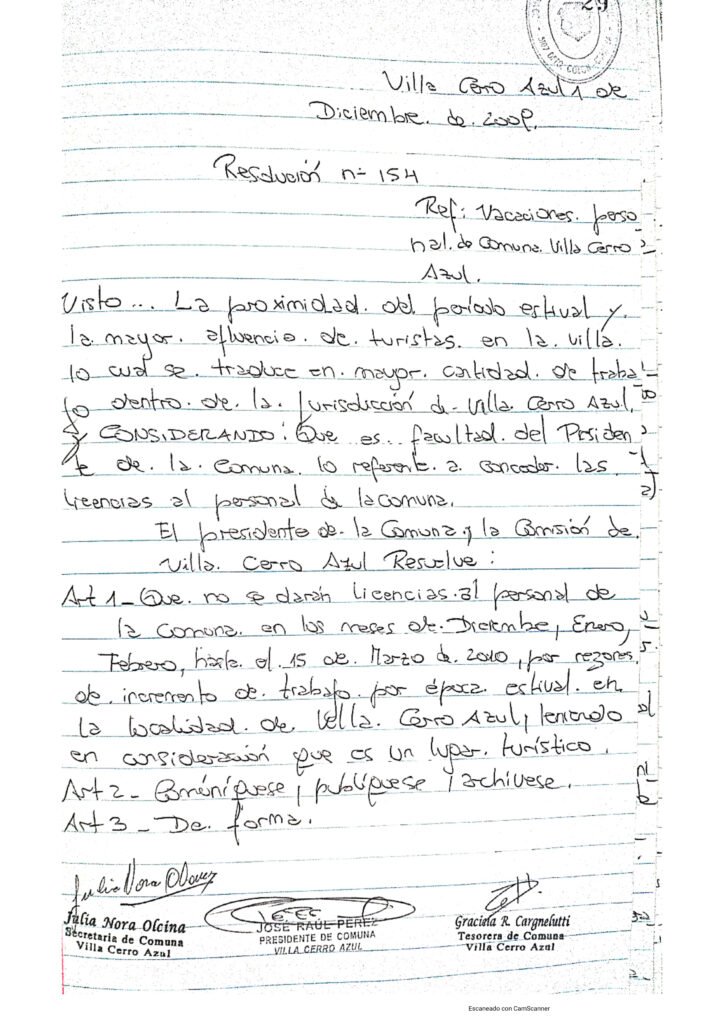 29
DPTO. COLON
Villa Cerro Azul 1 de
Diciembre. de. 2009.
Resolución n- 154
Ref: Vacaciones. perso
nal. de Comuna. Villa Cerro
Azul.
Visto... La proximidad. del período estival y.
la mayor. afluencia. de. turistas. en la. villa.
lo cual se. traduce en. mayor. cantidad. de traba
jo dentro. de. la. jurisdicción de- Villa. Cerro Azul,
y CONSIDERANDO: Que es.. facultad. del Presiden
te de. la. Comuna. lo referente. a. conceder. las.
licencias al personal de la comuna.
El presidente de. la Comuna. y la Comisión de.
Villa. Cerro Azul Resuelve:
Art 1- Que. no se darán licencias. al personal de
la Comuna. en los meses de. Diciembe, Enero,
Febrero, hasta el. 15 de. Marzo de. 2010, por rezones.
de. incremento de. trabajo. por época. estival. en.
la localidad. de Villa. Cerro Azul, teniendo
en consideración que es un lugar. turístico.
Art 2- Comuníquese, publíquese y archivese.
Art 3- De. forma.
Julia Nora Olcina
Secretaria de Comuna
Villa Cerro Azul
JOSE RAÚL PEREZ
PRESIDENTE DE COMUNA
VILLA CERRO AZUL
Graciela R. Cargnelutti
Tesorera de Comuna
Villa Cerro Azul
Escaneado con CamScanner